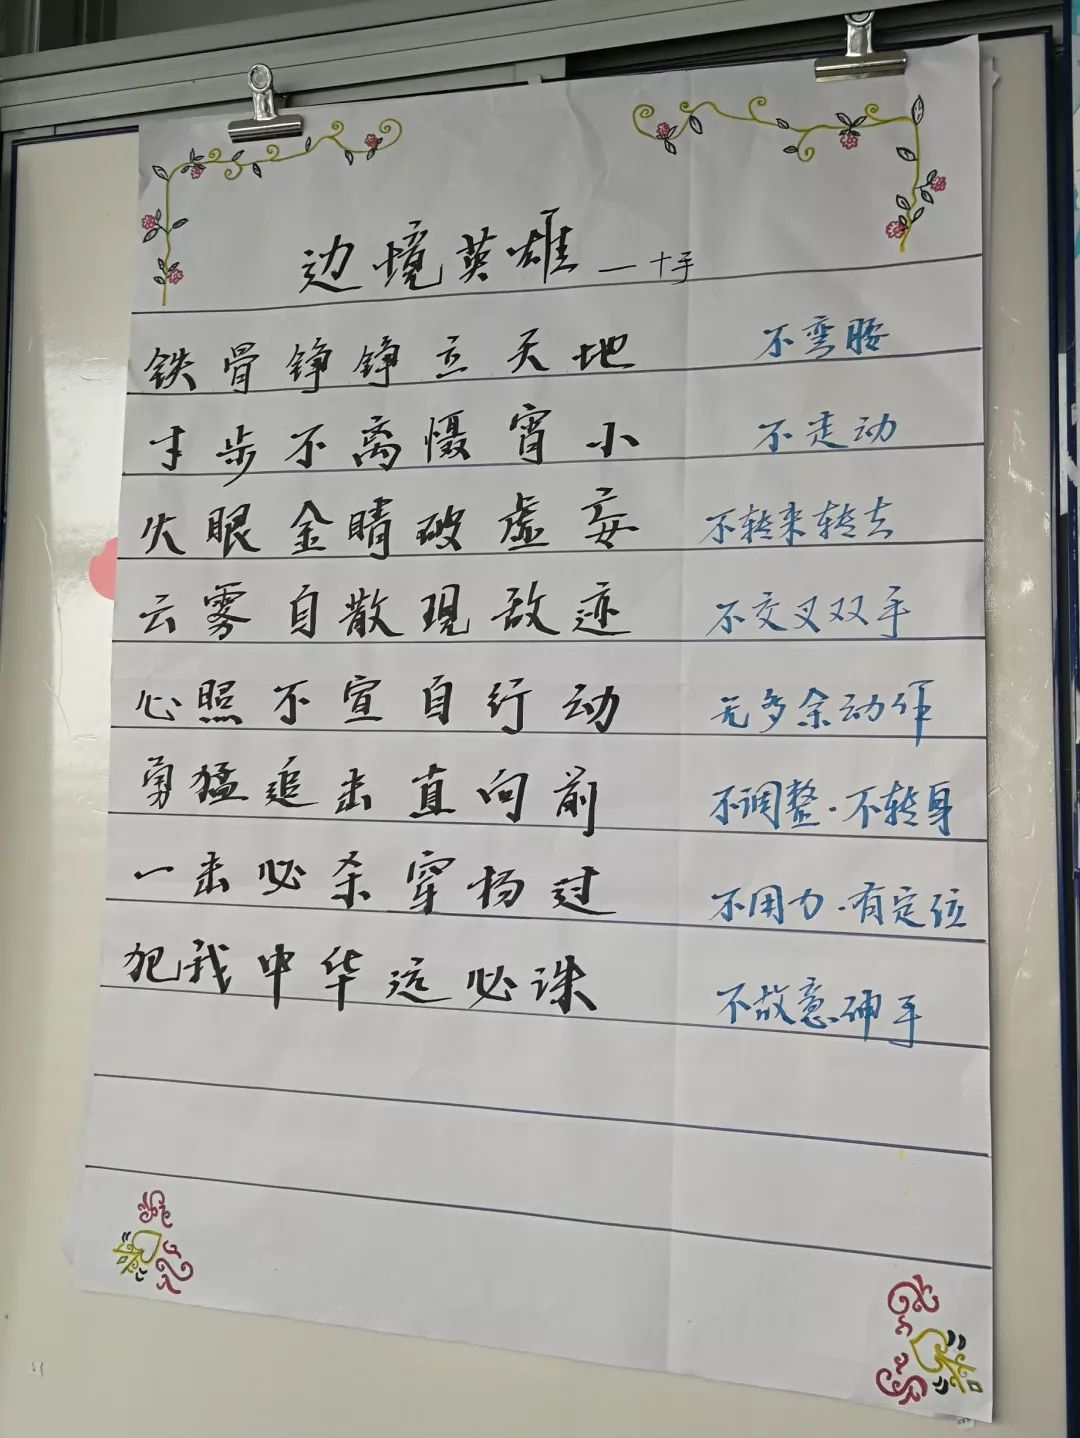 边境英雄 — 十手
铁骨铮铮立天地 不弯腰
寸步不离慑宵小 不走动
火眼金睛破虚妄 不转来转去
云雾自散现敌迹 不交叉双手
心照不宣自行动 无多余动作
勇猛追击直向前 不调整.不转身
一击必杀穿杨过 不用力.有定位
犯我中华远必诛 不故意伸手